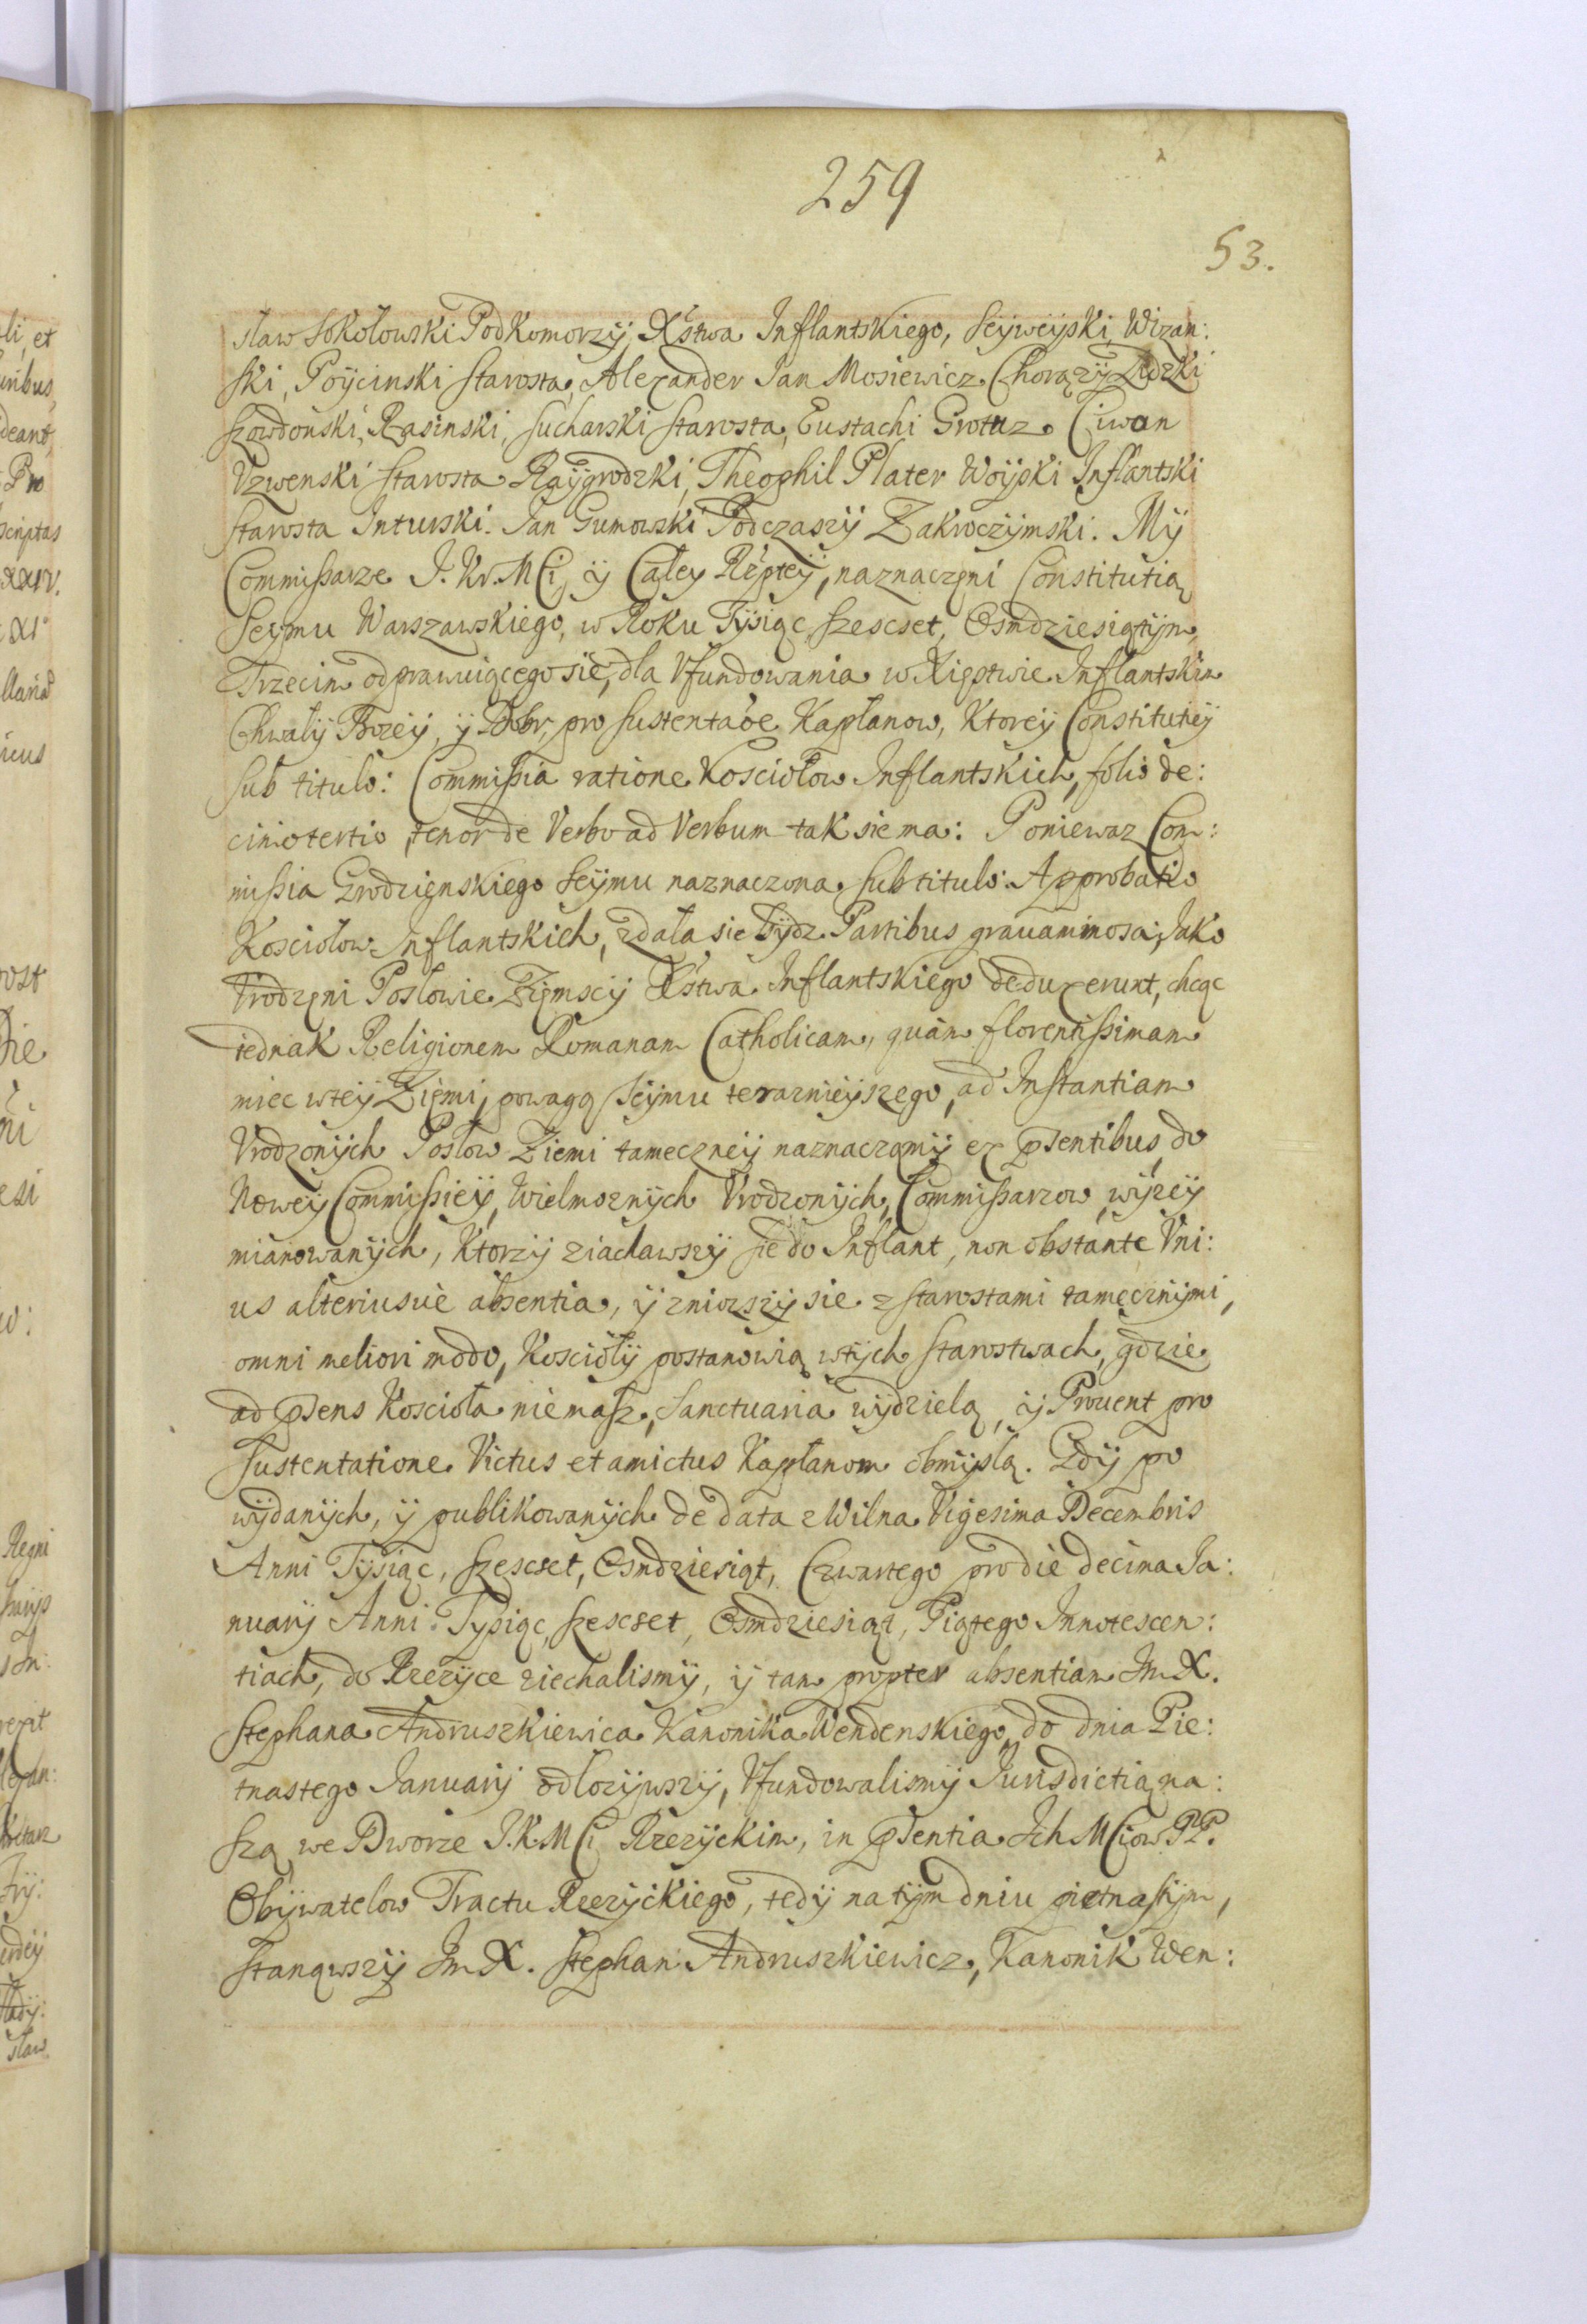 259
53.
sław Sokołowski Podkomorzÿ, Xs̃twa Inflantskiego, Seÿweÿski, Wizan:
ski, Poÿcinski Starosta, Alexander Ian Mosiewicz Chorązÿ Lidzki
Szowdonski, Rasinski, Sucharski Starosta, Eustachi Grotuz Ciwon
Uzwenski Starosta Raÿgrodzki, Theophil Plater Woÿski Inflantski
Starosta Inturski. Ian Gumowski Podczaszÿ Zakroczÿmski. Mÿ
Commissarze I. Kr. MCi ÿ Całey Rz̃ptey, naznaczęni Constitutią
Seymu Warszawskiego, w Roku Tÿsiąc, szescset, Osmdziesiątÿm
Trzecim odprawuiącego się, dla Ufundowania w Xięstwie Inflantskim
Chwałÿ Bozeÿ, ÿ Dobr, pro sustentaõe Kapłanow, Ktoreÿ Constitutieÿ
sub titulo: Commissia ratione Kosciołow Inflantskich, folio de:
cimotertio, tenor de Verbo ad Verbum tak sie ma: Poniewaz Com:
missia Grodzięnskiego Seÿmu naznaczona sub titulo: Approbatio
Kosciołow Inflantskich, zdała sie bÿdz Partibus grauaminosa, Iako
Vrodzęni Posłowie Zięmscÿ Xs̃twa Inflantskiego deduxerunt, chcąc
iednak Religionem Romanam Catholicam, quàm florentissimam
miec w teÿ Zięmi, powagą Seÿmu terazniejszego, ad Instantiam
Vrodzonÿch Posłow Ziemi tameczneÿ naznaczamÿ ex p̃sentibus do
Nowey Commissieÿ, Wielmoznÿch Vrodzonÿch, Commissarzow, wÿzeÿ
mianowanÿch, Ktorzÿ ziachawszÿ sie do Inflant, non obstante Vni:
us alteriusuè absentia, ÿ zniozszÿ sie z Starostami tamecznÿmi,
omni meliori modo, Kosciołÿ postanowią w tÿch Starostwach, gdzie
ad p̃sens Kosciola niemasz, Sanctuaria wÿdzielą, ÿ Prouent pro
Sustentatione Victus et amictus Kapłanom obmÿslą. Gdÿ po
wÿdanÿch, ÿ publikowanÿch de data z Wilna Vigesima Decembris
Anni Tÿsiąc, szescset, Osmdziesiąt, Czwartego pro die decima Ia:
nuarÿ Anni Tÿsiąc, szescset, Osmdziesiąt, Piątego Innotescen:
tiach, do Rzezÿce ziechalismÿ, ÿ tam propter absentiam Jm X.
Stephana Andruszkiewica Kanonika Wendenskiego, do dnia Pie:
tnastego Ianuarÿ odlozÿwszÿ, Ufundowalismÿ Iurisdictią na:
szą we Dworze I. K. MCi Rzezÿckim, in p̃sentia Ich MCiow PP.
Obÿwatelow Tractu Rzezÿckiego, tedÿ na tÿm dniu pietnastÿm,
Stanąwszÿ Jm X. Stephan Andruszkiewicz, Kanonik Wen: